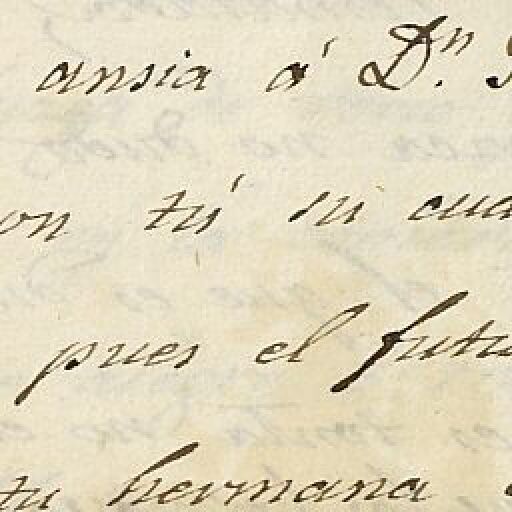 ansia á Dn.
on tú su cua
pues el futu
tu hermana